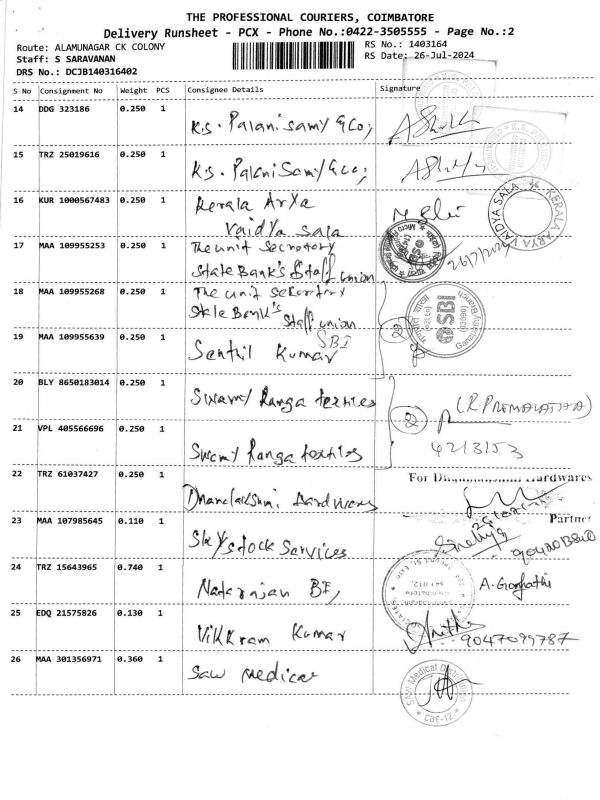 THE PROFESSIONAL COURIERS, COIMBATORE
Delivery Runsheet - PCX - Phone No.:0422-3505555 - Page No.:2
Route: ALAMUNAGAR CK COLONY
RS No.: 1403164
Staff: S SARAVANAN
RS Date: 26-Jul-2024
DRS No.: DCJB140316402
S No Consignment No Weight PCS Consignee Details Signature
14 DDG 323186 0.250 1
K.S. Palanisamy & Co;
15 TRZ 25019616 0.250 1
K.S. Palanisamy & Co;
16 KUR 1000567483 0.250 1 Kerala Arya
Vaidya Sala
KERALA ARYA VAIDYA SALA
17 MAA 109955253 0.250 1 The unit Secretory
State Bank's Staff union
26/7/2024
18 MAA 109955268 0.250 1 The unit
State Bank's Staff union
SBI
19 MAA 109955639 0.250 1 SBI
Senthil Kumar
2
20 BLY 8650183014 0.250 1
Swamy Ranga textiles
(R.PREMALATHA)
2
21 VPL 405566696 0.250 1
4213153
Swamy Ranga textiles
22 TRZ 61037427 0.250 1 For Hardwares
Dhanalakshmi Hardwares
Partner
23 MAA 107985645 0.110 1
Skystock Services
24 TRZ 15643965 0.740 1
Natarajan BF,
25 EDQ 21575826 0.130 1
Vikkram Kumar 9047099787
26 MAA 301356971 0.360 1
Saw medical
SAW Medical
CBE-12